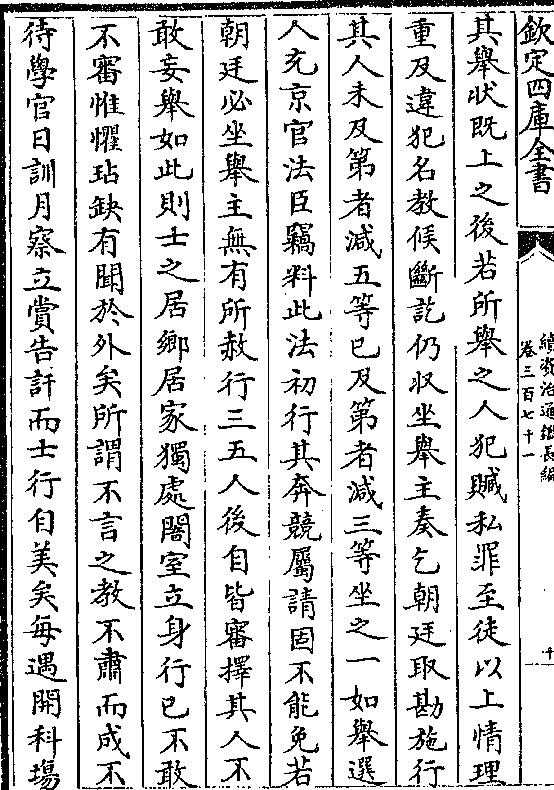 欽定四庫全書
續資治通鑑長編
卷三百七十一
十一
其舉狀既上之後若所舉之人犯贓私罪至徒以上情理
重及違犯名教候斷訖仍收坐舉主奏乞朝廷取勘施行
其人未及第者減五等已及第者減三等坐之一如舉選
人充京官法臣竊料此法初行其奔競屬請固不能免若
朝廷必坐舉主無有所赦行三五人後自皆審擇其人不
敢妄舉如此則士之居鄉居家獨處闇室立身行已不敢
不審惟懼玷缺有聞於外矣所謂不言之教不肅而成不
待學官日訓月察立賞告訐而士行自美矣每遇開科場